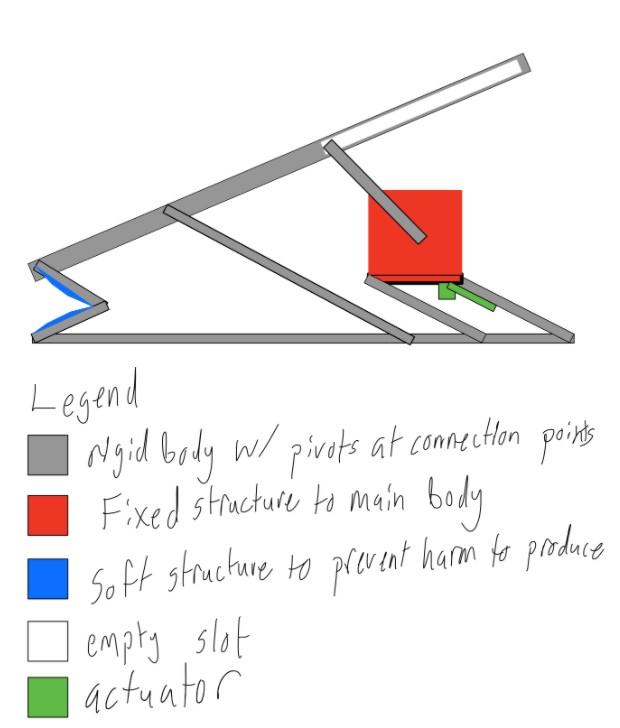 Legend
rigid body w/ pivots at connection points
Fixed structure to main body
soft structure to prevent harm to produce
empty slot
actuator